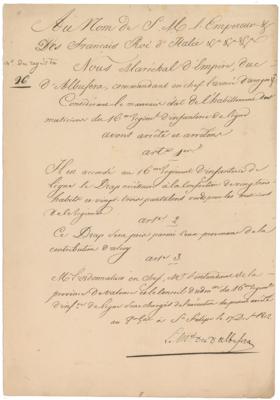 Au Nom de S. M. l'Empereur
Des Français Roi d'Italie &a &a &a
nº du registre
96
Nous Maréchal d'Empire, duc
d'Albufera, commandant en chef l'armée d'aragon &a
Considérant le mauvais état de l'habillement des
musiciens du 16me Régiment d'infanterie de ligne
avons arrêté et arrêtons
art. 1er
Il est accordé au 16me Régiment d'infanterie de
ligne le Drap nécessaire à la confection de vingt trois
habits et vingt trois pantalons verds pour les musiciens
de ce régiment
art. 2
Ce Drap sera pris parmi ceux provenant de la
contribution d'alcoy
art. 3
Mr l'ordonnateur en chef, Mr l'intendant de la
province de valence et le Conseil d'adm. du 16me Régiment
d'inf. de ligne sont chargés de l'exécution du présent arrêté
au Qer Gal à St Felipe le 17 1812
d'albufera